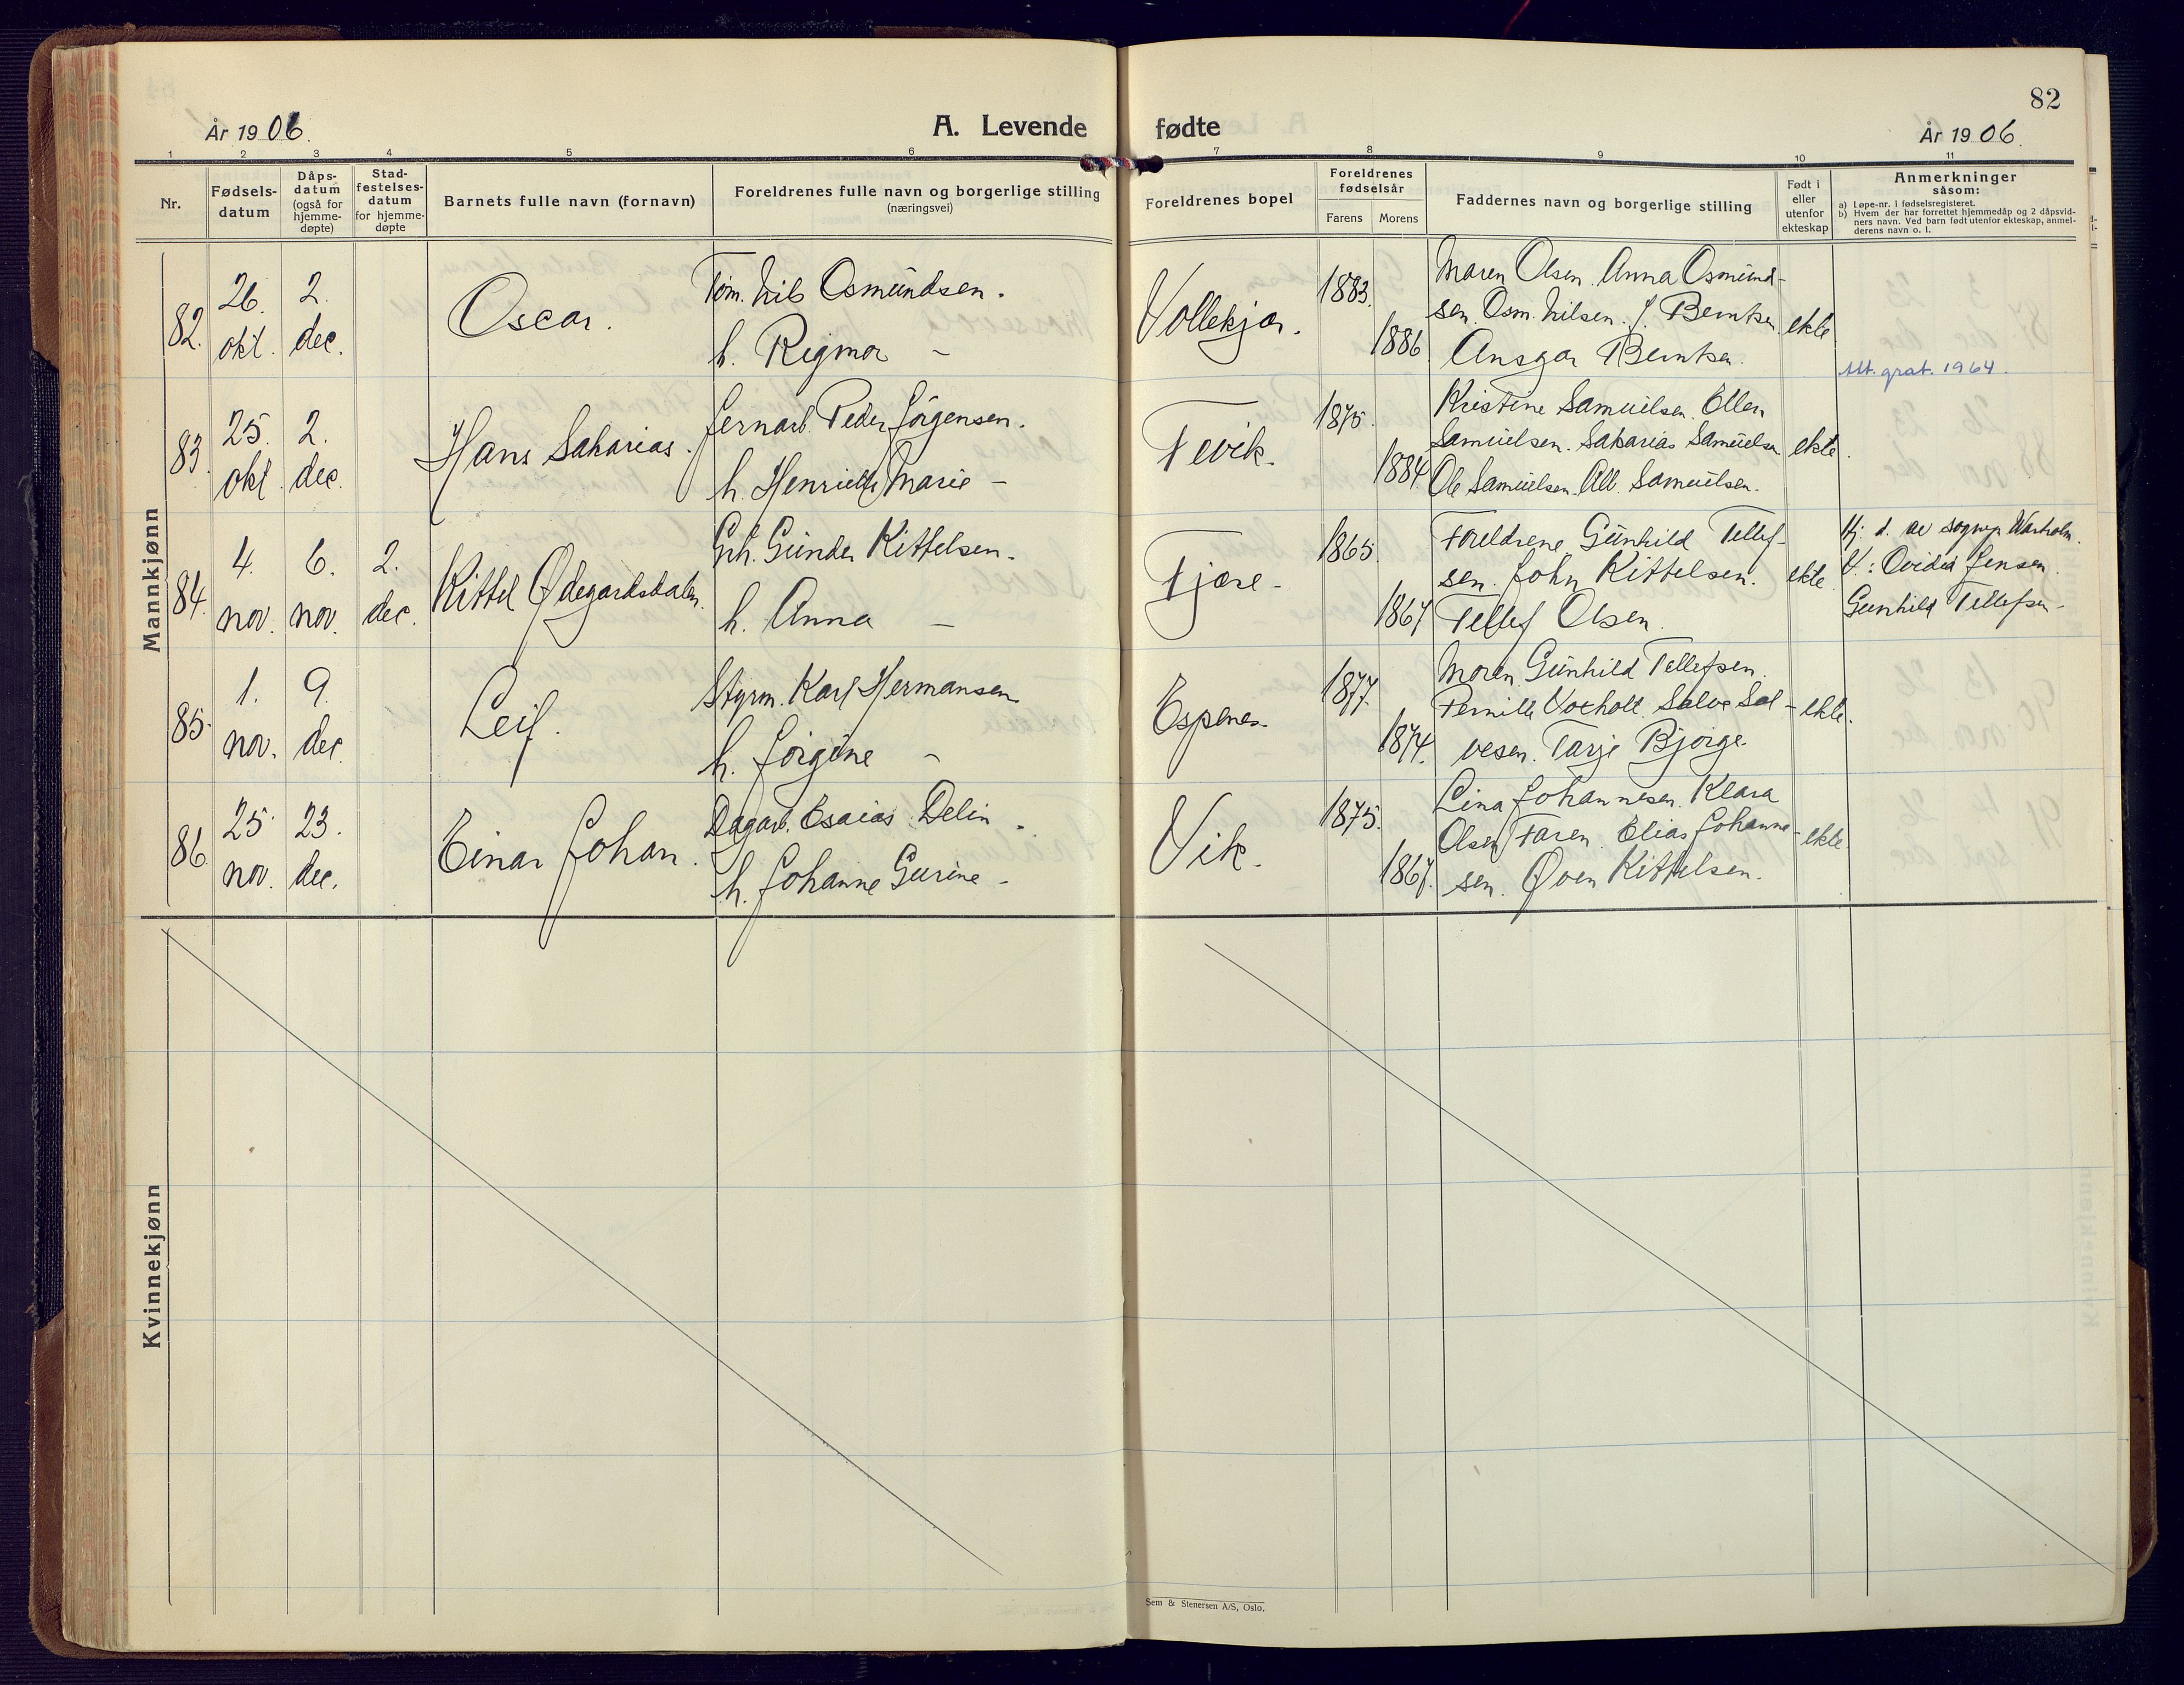 82
År 1906.
A. Levende fødte
År 1906.
1 2 3 4 5 6 7 8 9 10 11
Nr.
Fødsels-
datum
Dåps-
datum
(også for
hjemme-
døpte)
Stad-
festelses-
datum
for hjemme-
døpte
Barnets fulle navn (fornavn)
Foreldrenes fulle navn og borgerlige stilling
(næringsvei)
Foreldrenes bopel
Foreldrenes
fødselsår
Farens
Morens
Faddernes navn og borgerlige stilling
Født i
eller
utenfor
ekteskap
Anmerkninger
såsom:
a) Løpe-nr. i fødselsregisteret.
b) Hvem der har forrettet hjemmedåp og 2 dåpsvid-
ners navn. Ved barn født utenfor ekteskap, anmel-
derens navn o. l.
Mannkjønn
82.
26.
okt.
2.
dec.
Oscar.
Tøm. Nils Osmundsen.
h. Rigmor –
Vollekjær.
1883.
1886
Maren Olsen. Anna Osmund-
sen. Osm. Nilsen. J. Berntsen.
Ansgar Berntsen.
ekte
Att. grat. 1964.
83.
25.
okt.
2.
dec.
Hans Sakarias.
Jernarb. Peder Jörgensen.
h. Henriette Marie –
Fevik.
1875.
1884.
Kristine Samuelsen. Ellen
Samuelsen. Sakarias Samuelsen
Ole Samuelsen. Alb. Samuelsen.
ekte.
84.
4.
nov.
6.
nov.
2.
dec.
Kittel Ødegardsdalen.
Grh. Gunder Kittelsen.
h. Anna –
Fjære.
1865.
1867
Foreldrene. Gunhild Tellef-
sen. John Kittelsen.
Tellef Olsen.
ekte.
Hj. d. av sogнepr. Warholm.
V.: Ovidia Jensen.
Gunhild Tellefsen.
85.
1.
nov.
9.
dec.
Leif.
Styrm. Karl Hermansen
h. Jörgine –
Espenes.
1877.
1874.
Moren. Gunhild Tellefsen.
Pernille Voxholt. Salve Sal-
vesen. Tarje Bjorge.
ekte.
86.
25.
nov.
23.
dec.
Einar Johan.
Dagarb. Esaias Delin.
h. Johanne Gurine –
Vik.
1875.
1867.
Lina Johannesen. Klara
Olsen. Faren. Elias Johanne-
sen. Øven Kittelsen.
ekte.
Kvinnekjønn
Sem & Stenersen A/S, Oslo.